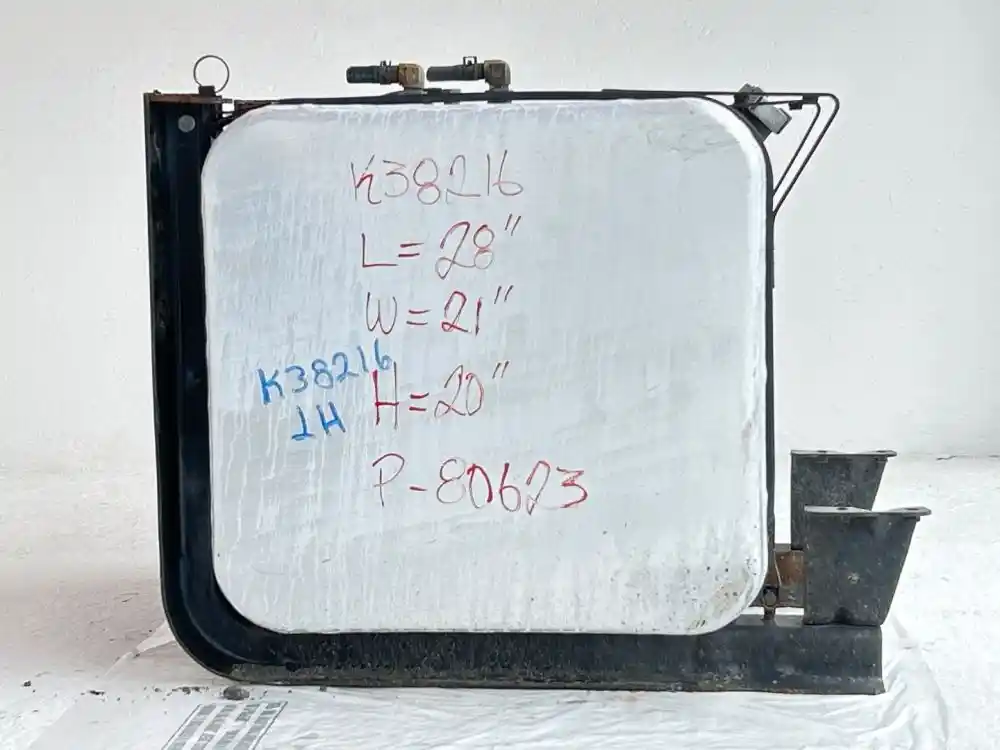 K38216
L= 28"
W= 21"
K38216
LH
H=20"
P-80623